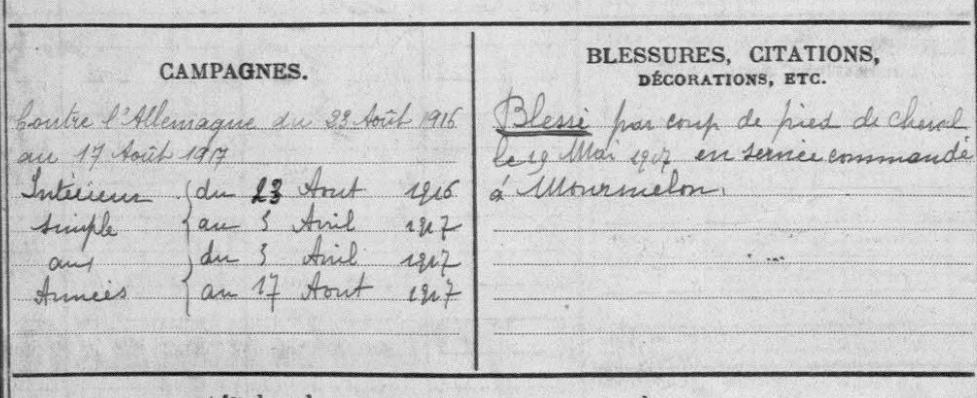 CAMPAGNES.
Contre l'Allemagne du 23 Août 1916
au 17 Août 1917
Intérieur du 23 Aout 1916
simple au 5 Avril 1917
aux du 5 Avril 1917
Armées au 17 Aout 1917
BLESSURES, CITATIONS,
DÉCORATIONS, ETC.
Blessé par coup de pied de cheval
le 19 Mai 1917 en service commandé
à Mourmelon.